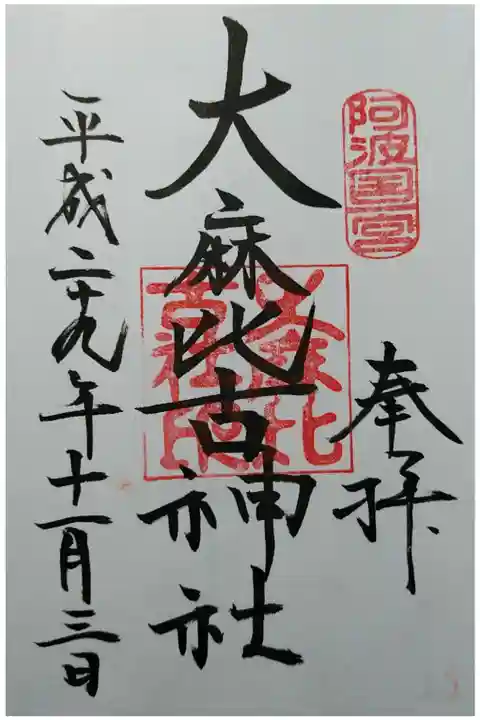 阿波国一宮
奉拝
大麻比古神社
大麻比
古社印
平成二十九年十一月三日